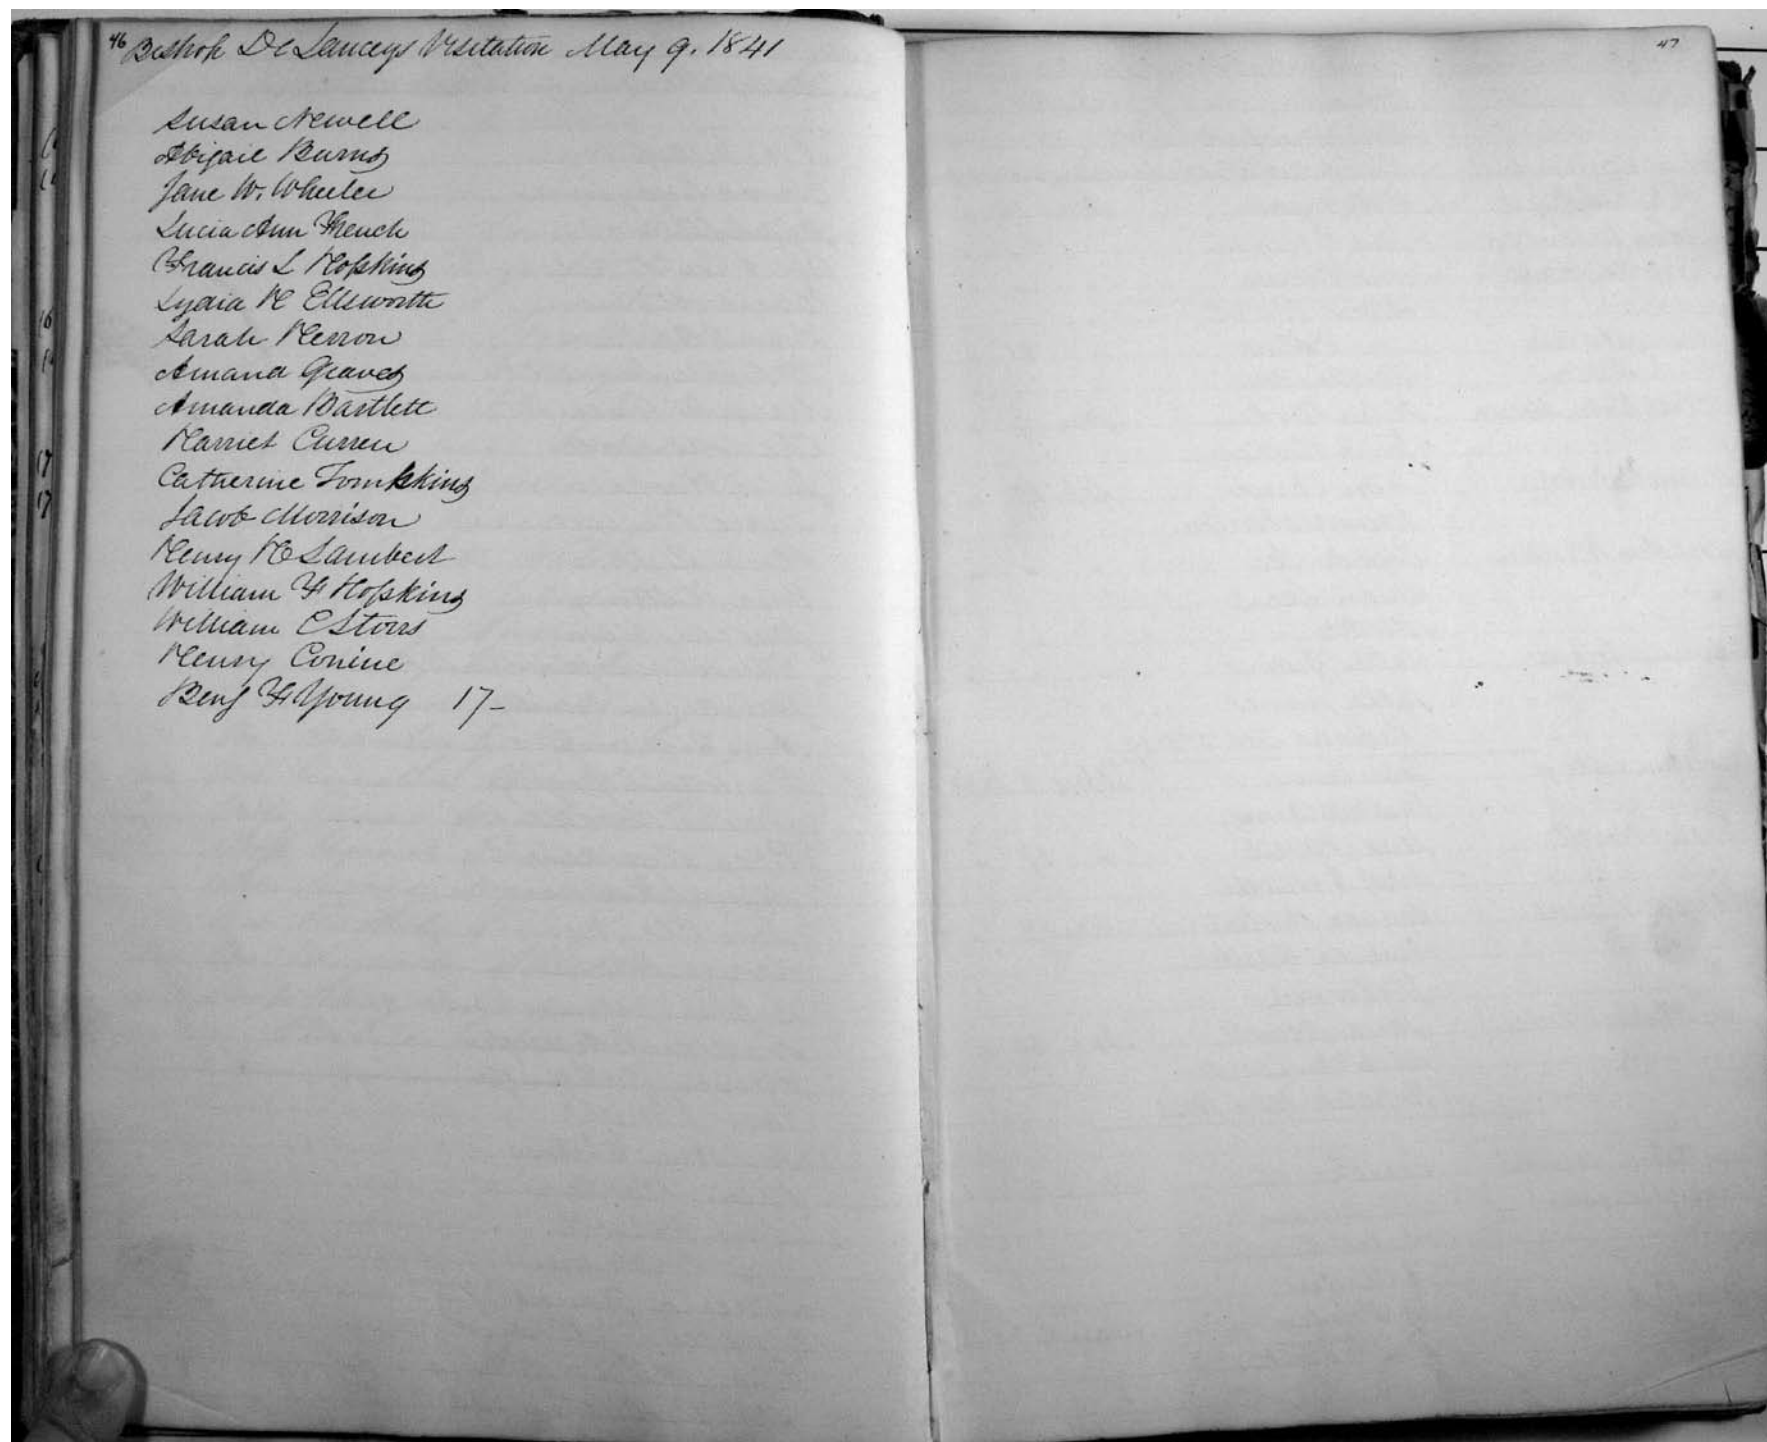 46 Bishop De Lanceys Visitation May 9. 1841
47
Susan Newell
Abigail Burns
Jane W. Wheeler
Lucia Ann French
Francis L Hopkins
Lydia H Ellsworth
Sarah Herron
Amand Graves
Amanda Bartlett
Harriet Curren
Catherine Tompkins
Jacob Morrison
Henry H Lambert
William F Hopkins
William C Storrs
Henry Conine
Benj F Young 17-
16
17
17